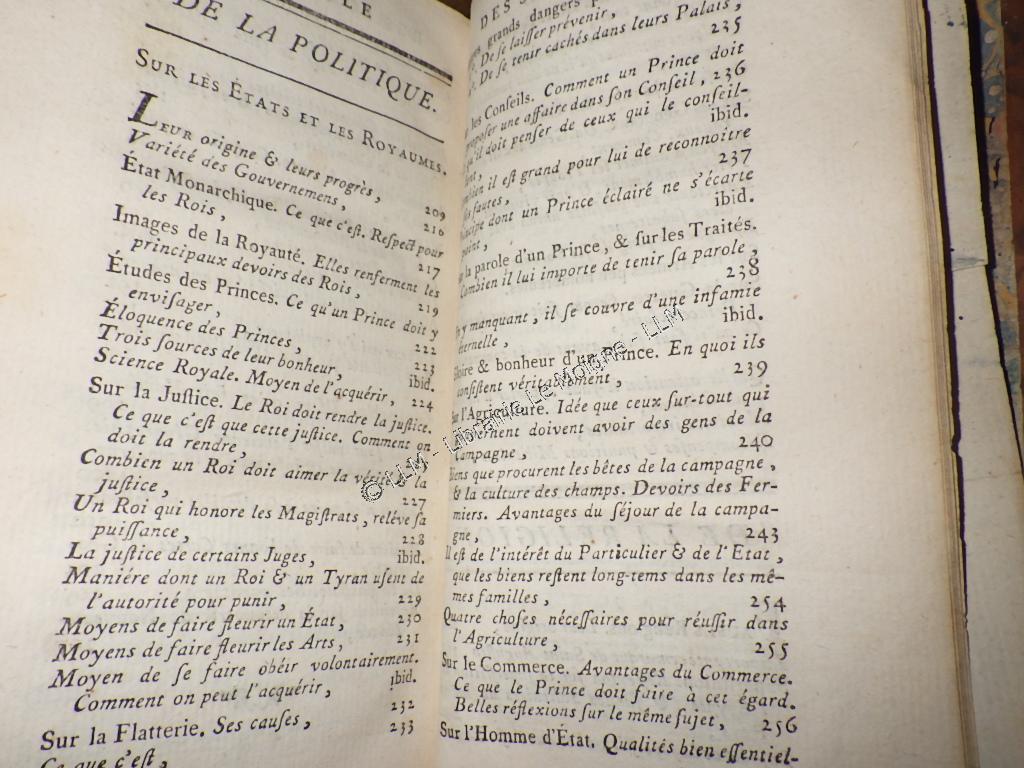 DE LA POLITIQUE.
SUR LES ÉTATS ET LES ROYAUMES.
LEUR origine & leurs progrès, 209
Variété des Gouvernemens, 216
État Monarchique. Ce que c'eſt. Reſpect pour
les Rois, 217
Images de la Royauté. Elles renferment les
principaux devoirs des Rois, 219
Études des Princes. Ce qu'un Prince doit y
enviſager, 222
Éloquence des Princes, 223
Trois ſources de leur bonheur, ibid.
Science Royale. Moyen de l'acquérir, 224
Sur la Juſtice. Le Roi doit rendre la juſtice.
Ce que c'eſt que cette juſtice. Comment on
doit la rendre,
Combien un Roi doit aimer la la
juſtice, 227
Un Roi qui honore les Magiſtrats, reléve ſa
puiſſance, 228
La juſtice de certains Juges, ibid.
Maniére dont un Roi & un Tyran uſent de
l'autorité pour punir, 229
Moyens de faire fleurir un État, 230
Moyens de faire fleurir les Arts, 231
Moyen de ſe faire obéir volontairement.
Comment on peut l'acquérir, ibid.
232
Sur la Flatterie. Ses cauſes, 233
Ce que c'eſt,
DES
grands dangers
De ſe laiſſer prévenir,
De ſe tenir cachés dans leurs Palais,
235
les Conſeils. Comment un Prince doit
propoſer une affaire dans ſon Conſeil, 236
qu'il doit penſer de ceux qui le conſeil-
lent, ibid.
bien il eſt grand pour lui de reconnoître
fautes, 237
dont un Prince éclairé ne s'écarte
point, ibid.
la parole d'un Prince, & ſur les Traités.
Combien il lui importe de tenir ſa parole,
238
y manquant, il ſe couvre d'une infamie
éternelle, ibid.
& bonheur d'un Prince. En quoi ils
conſiſtent véritablement, 239
l'Agriculture. Idée que ceux ſur-tout qui
gouvernent doivent avoir des gens de la
Campagne, 240
Biens que procurent les bêtes de la campagne,
& la culture des champs. Devoirs des Fer-
miers. Avantages du ſéjour de la campa-
gne, 243
Il eſt de l'intérêt du Particulier & de l'État,
que les biens reſtent long-tems dans les mê-
mes familles, 254
Quatre choſes néceſſaires pour réuſſir dans
l'Agriculture, 255
Sur le Commerce. Avantages du Commerce.
Ce que le Prince doit faire à cet égard.
Belles réflexions ſur le même ſujet, 256
Sur l'Homme d'État. Qualités bien eſſentiel-
© LLM - Librairie Le Moigne - LLM